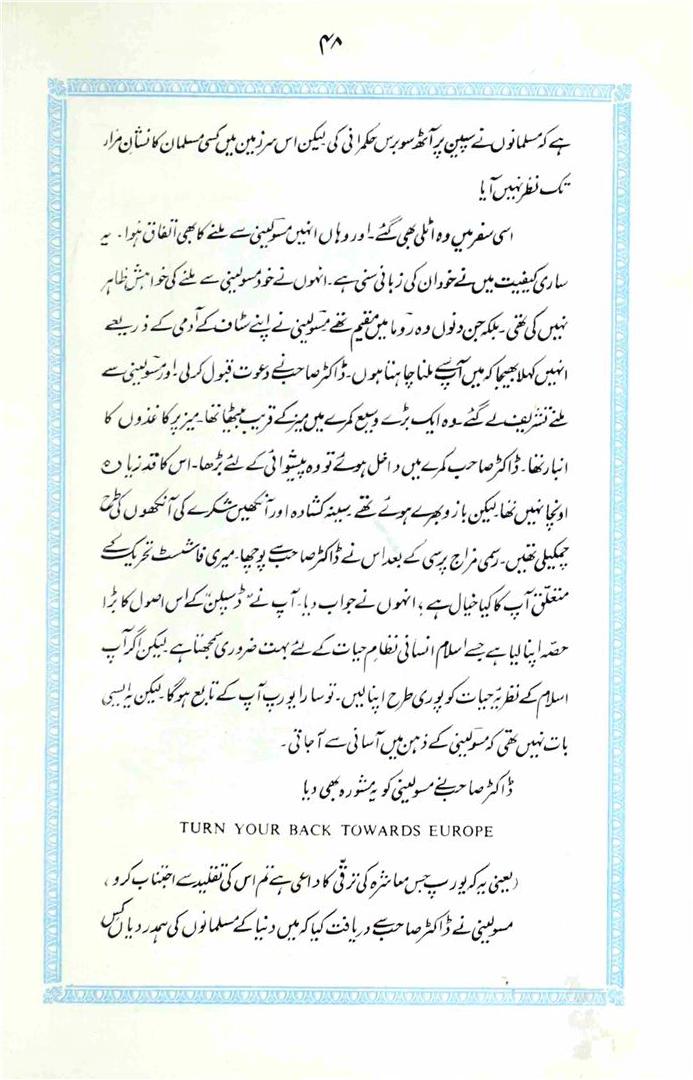 ۴۸
ہے کہ مسلمانوں نے سپین پر آٹھ سو برس حکمرانی کی لیکن اس سرزمین میں کسی مسلمان کا نشانِ مزار
تک نظر نہیں آیا
اسی سفر میں وہ اٹلی بھی گئے۔ اور وہاں انہیں مسولینی سے ملنے کا بھی اتفاق ہوا۔ یہ
ساری کیفیت میں نے خود ان کی زبانی سنی ہے۔ انہوں نے خود مسولینی سے ملنے کی خواہش ظاہر
نہیں کی تھی۔ بلکہ جن دنوں وہ روما میں مقیم تھے مسولینی نے اپنے سٹاف کے آدمی کے ذریعے
انہیں کہلا بھیجا کہ میں آپ سے ملنا چاہتا ہوں۔ ڈاکٹر صاحب نے دعوت قبول کر لی۔ اور مسولینی سے
ملنے تشریف لے گئے۔ وہ ایک بڑے وسیع کمرے میں میز کے قریب بیٹھا تھا۔ میز پر کاغذوں کا
انبار تھا۔ ڈاکٹر صاحب کمرے میں داخل ہوئے تو وہ پیشوائی کے لئے بڑھا۔ اس کا قد زیادہ
اونچا نہیں تھا۔ لیکن بازو بھرے ہوئے تھے۔ سینہ کشادہ اور آنکھیں شکرے کی آنکھوں کی طرح
چمکیلی تھیں۔ رسمی مزاج پرسی کے بعد اس نے ڈاکٹر صاحب سے پوچھا۔ میری فاشسٹ تحریک کے
متعلق آپ کا کیا خیال ہے؟ انہوں نے جواب دیا۔ آپ نے "ڈسپلن" کے اس اصول کا بڑا
حصہ اپنا لیا ہے جسے اسلام انسانی نظامِ حیات کے لئے بہت ضروری سمجھتا ہے۔ لیکن اگر آپ
اسلام کے نظریۂ حیات کو پوری طرح اپنا لیں۔ تو سارا یورپ آپ کے تابع ہو گا۔ لیکن یہ ایسی
بات نہیں تھی کہ مسولینی کے ذہن میں آسانی سے آ جاتی۔
ڈاکٹر صاحب نے مسولینی کو یہ مشورہ بھی دیا
TURN YOUR BACK TOWARDS EUROPE
(یعنی یہ کہ یورپ جس معاشرہ کی ترقی کا داعی ہے تم اس کی تقلید سے اجتناب کرو)
مسولینی نے ڈاکٹر صاحب سے دریافت کیا کہ میں دنیا کے مسلمانوں کی ہمدردیاں کس